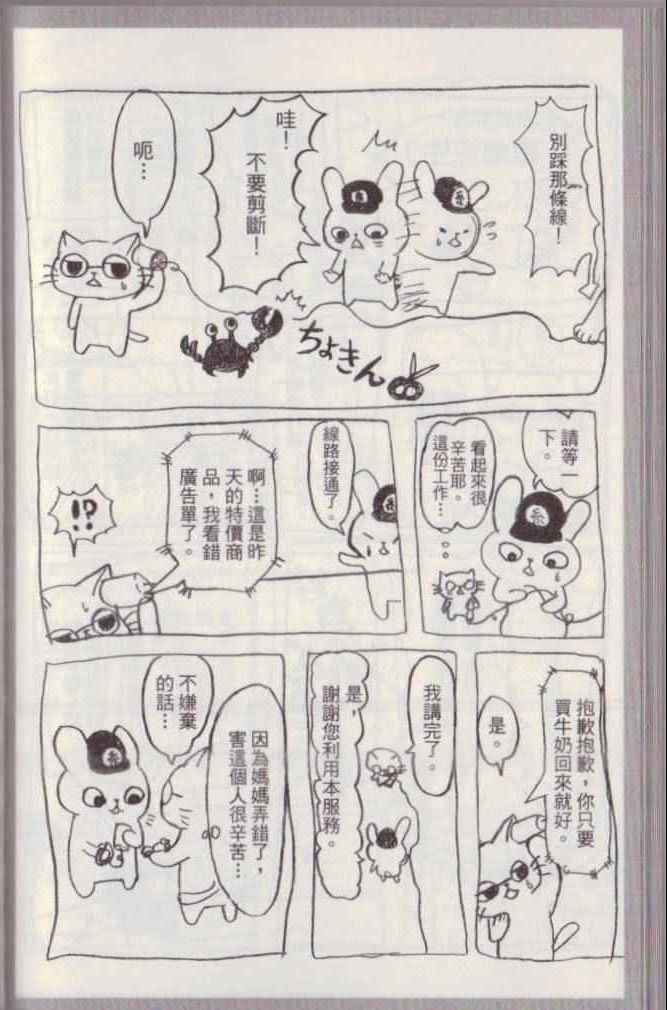 別踩那條線！
哇！
不要剪斷！
呃…
ちょきん
請等一
下。
看起來很
辛苦耶。
這份工作…
線路接通了。
啊…這是昨
天的特價商
品，我看錯
廣告單了。
!?
抱歉抱歉，你只要
買牛奶回來就好。
是。
我講完了。
是，
謝謝您利用本服務。
因為媽媽弄錯了，
害這個人很辛苦…
不嫌棄
的話…
糸
糸
糸